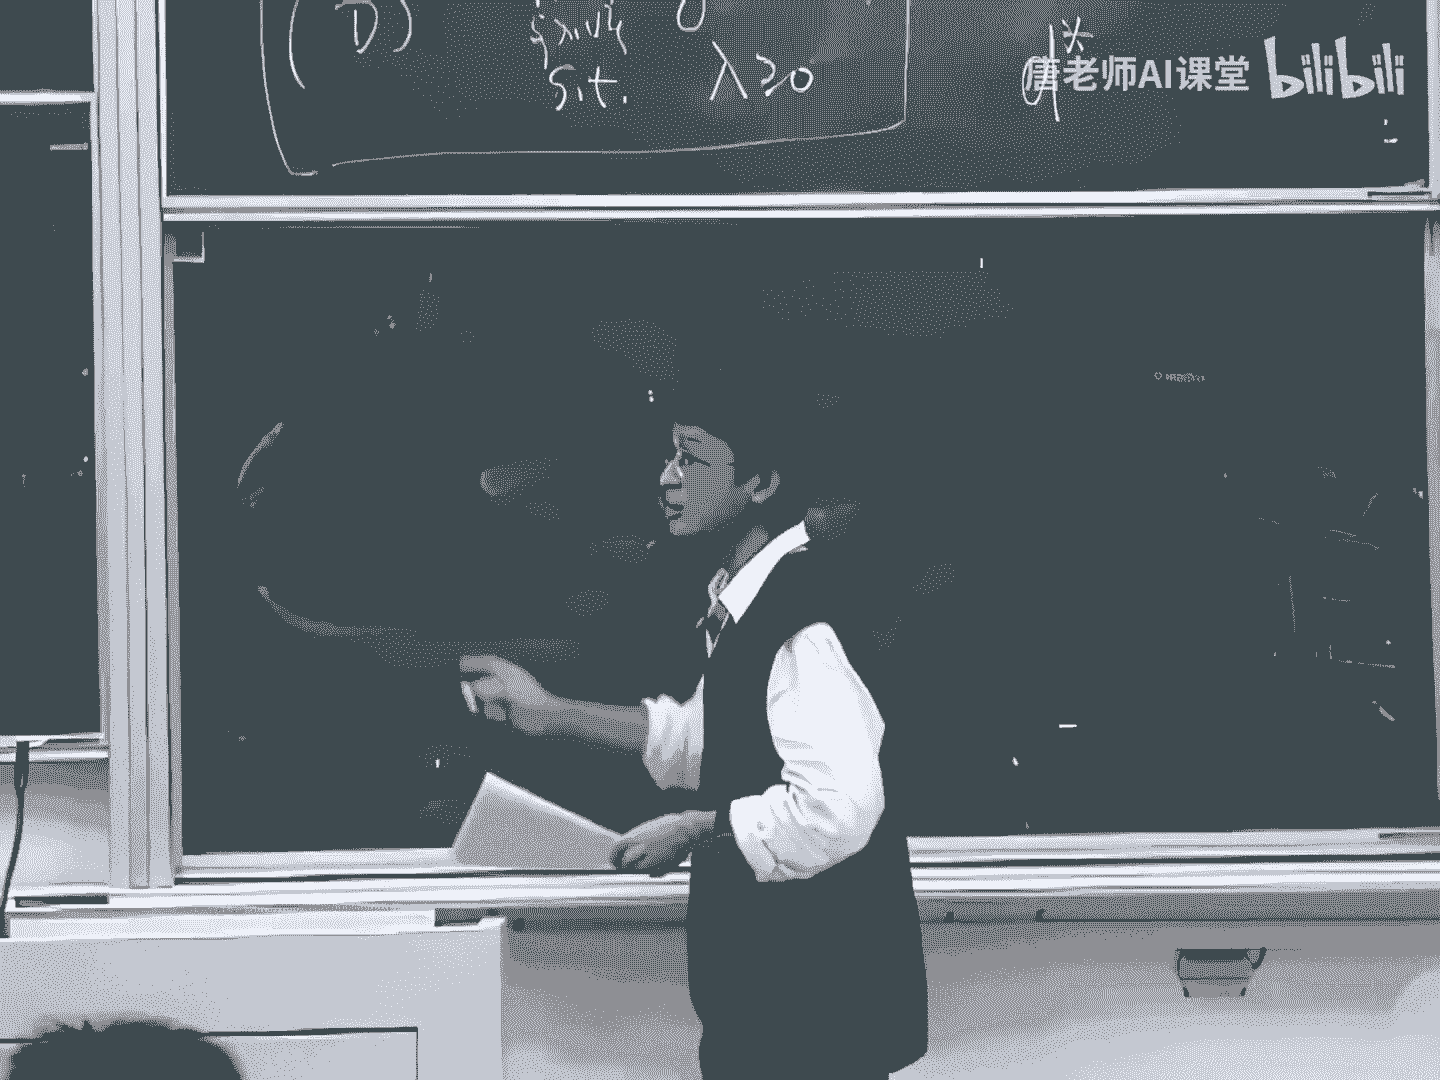 (D) {λ,ν}
s.t. λ≥0 d*
唐老师AI课堂 bilibili